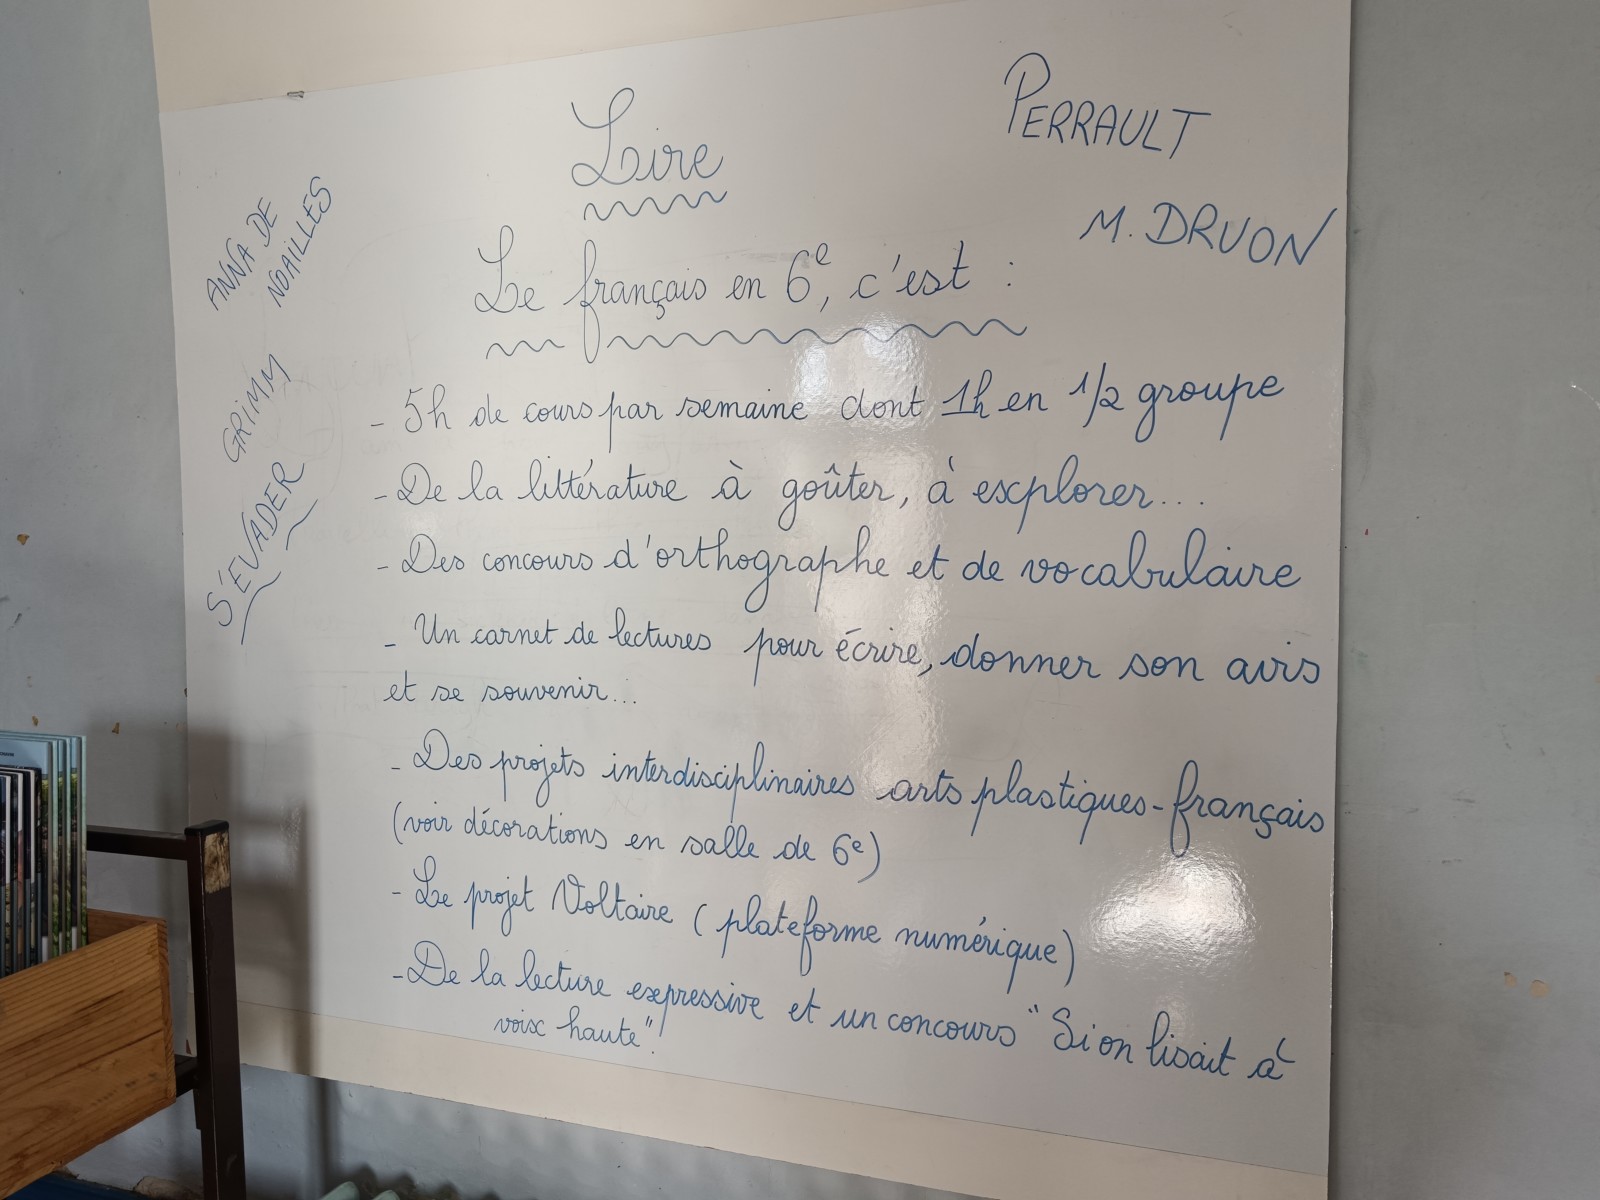 Lire
PERRAULT
M. DRUON
ANNA DE
NOAILLES
GRIMM
S'ÉVADER
Le français en 6e, c'est :
- 5h de cours par semaine dont 1h en 1/2 groupe
- De la littérature à goûter, à explorer...
- Des concours d'orthographe et de vocabulaire
- Un carnet de lectures pour écrire, donner son avis
et se souvenir...
- Des projets interdisciplinaires arts plastiques-français
(voir décorations en salle de 6e)
- Le projet Voltaire (plateforme numérique)
- De la lecture expressive et un concours "Si on lisait à
voix haute".